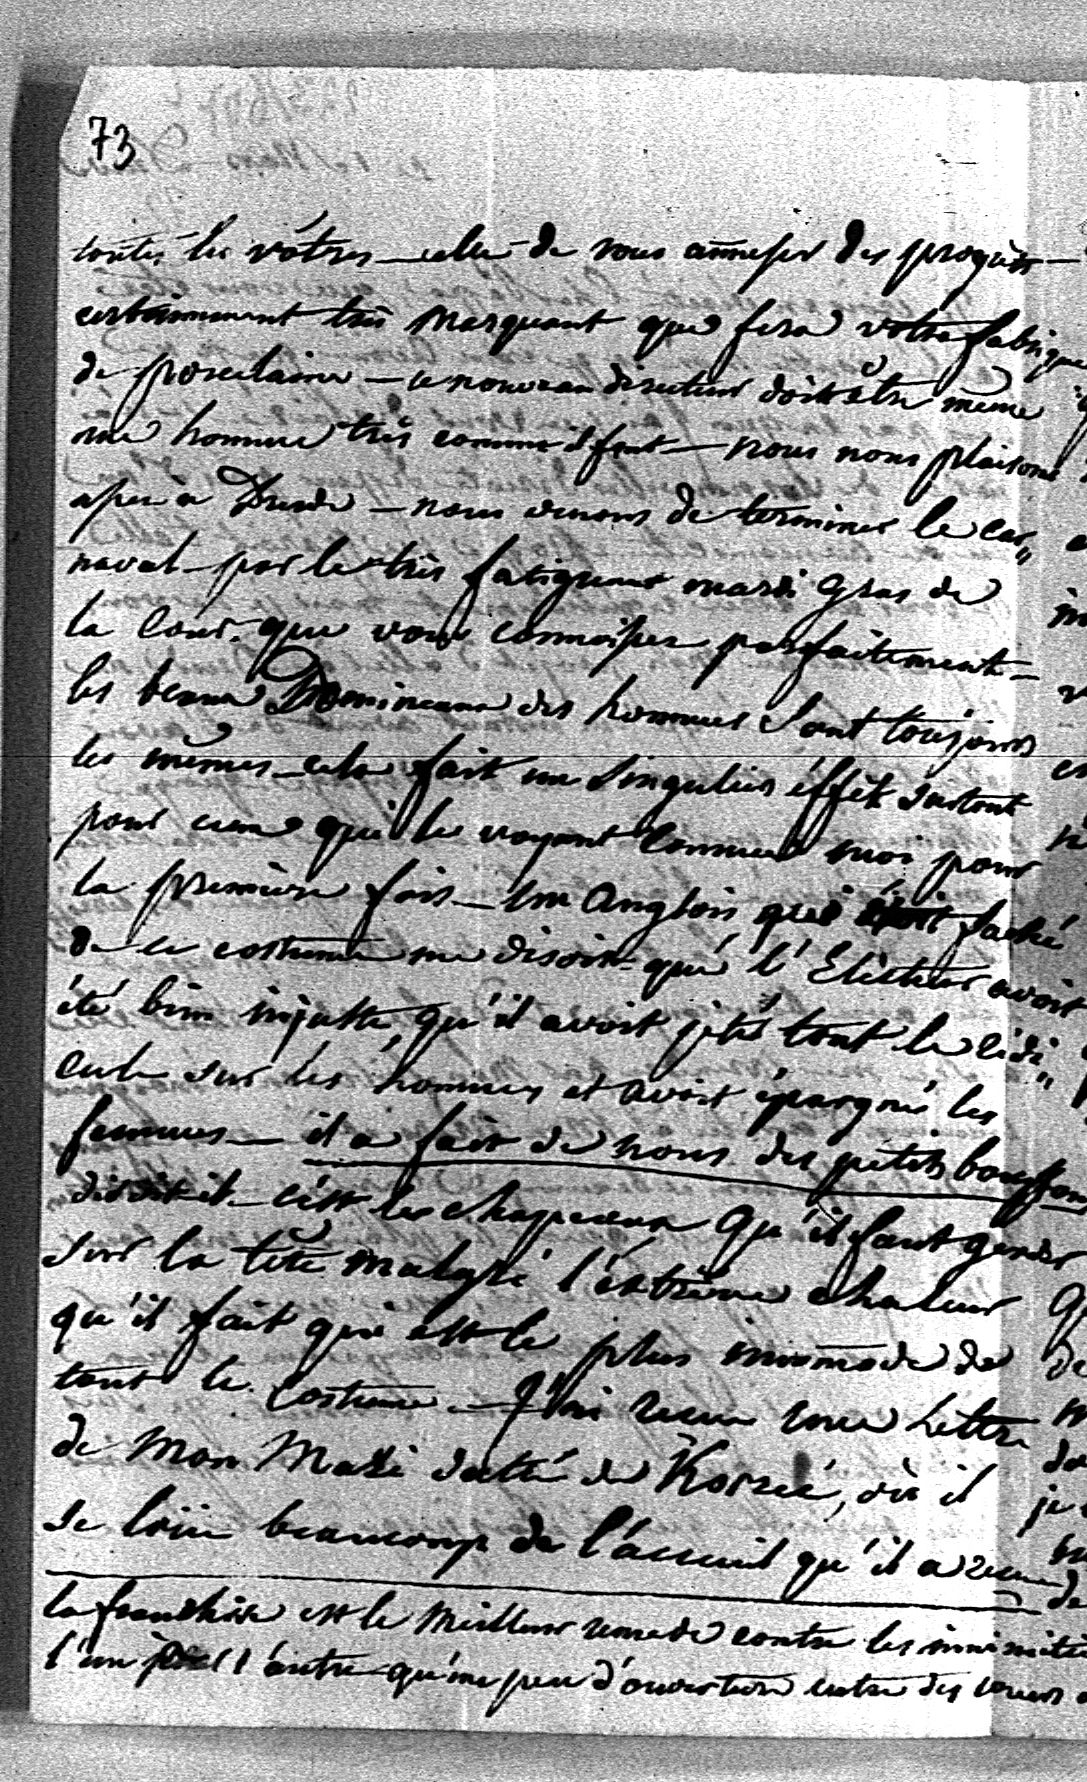 73
toutes les vôtres — celle de vous amuser des progrès —
certainnement très marquant que fera votre fabrique
de porcelaine — ce nouveau directeur doit être même
une homme très comme il faut — nous nous plaisons
a peu a Dresde — nous venons de terminer le car„
naval par le très fatiguant mardi gras de
la Cour que vous connoisses parfaitement —
les beaux Domineaux des hommes sont toujours
les mêmes — cela fait un singulier éffèt surtout
pour ceux qui le voyant comme moi pour
la première fois — un Anglois qui étoit faché
de ce costume me disoit qué l'Elècteur avoit
été bien injuste, qu'il avoit jeté tout le ridi„
cule sur les hommes et avoit épargné les
femmes — il a fait de nous des petits bouffons
disoit il — c'est les chapeaux qu'il faut garder
sur la tête malgré l'extrême chaleur
qu'il fait qui est le plus incomode de
tout le costume — J'ai recue une Lettre
de Mon Mari datté de Korzec, où il
se loüe beaucoup de l'accueil qu'il a recue
la franchise est le meilleur remede contre les inimitié
l'un l'autre qu'une peu d'ouverture entre des cœurs